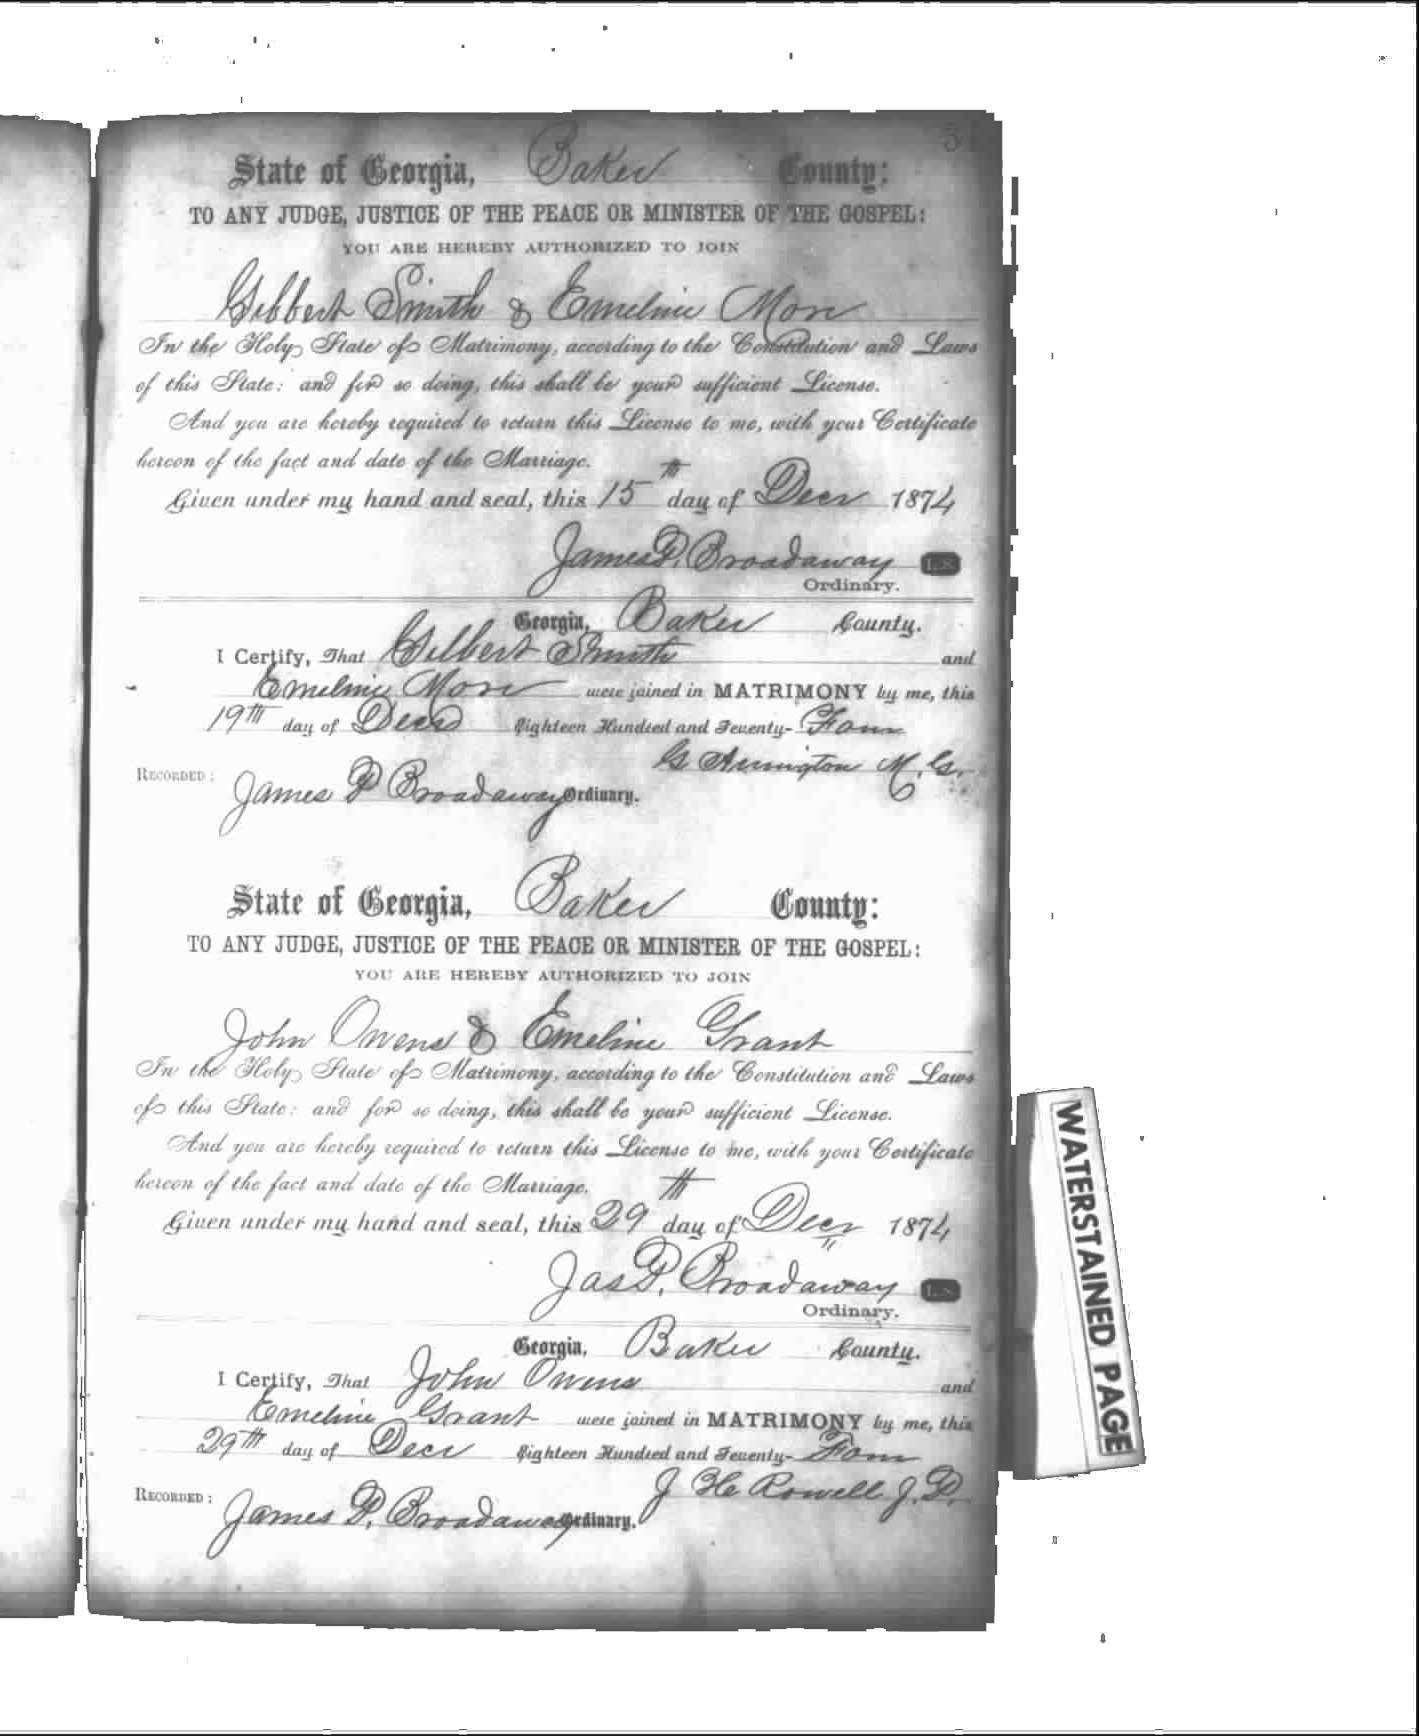 State of Georgia, Baker County:
TO ANY JUDGE, JUSTICE OF THE PEACE OR MINISTER OF THE GOSPEL:
YOU ARE HEREBY AUTHORIZED TO JOIN
Gilbert Smith & Emeline More
In the Holy State of Matrimony, according to the Constitution and Laws
of this State: and for so doing, this shall be your sufficient License.
And you are hereby required to return this License to me, with your Certificate
hereon of the fact and date of the Marriage.
Given under my hand and seal, this 15th day of Decr 1874
James P. Broadaway L.S.
Ordinary.
Georgia, Baker County.
I Certify, That Gilbert Smith and
Emeline More were joined in MATRIMONY by me, this
19th day of Decr Eighteen Hundred and Seventy-Four
G Arrington M.G.
RECORDED:
James P Broadaway Ordinary.
State of Georgia, Baker County:
TO ANY JUDGE, JUSTICE OF THE PEACE OR MINISTER OF THE GOSPEL:
YOU ARE HEREBY AUTHORIZED TO JOIN
John Owens & Emeline Grant
In the Holy State of Matrimony, according to the Constitution and Laws
of this State: and for so doing, this shall be your sufficient License.
And you are hereby required to return this License to me, with your Certificate
hereon of the fact and date of the Marriage.
Given under my hand and seal, this 29th day of Decr 1874
Jas P. Broadaway L.S.
Ordinary.
Georgia, Baker County.
I Certify, That John Owens and
Emeline Grant were joined in MATRIMONY by me, this
29th day of Decr Eighteen Hundred and Seventy-Four
J H Rowell J.P.
RECORDED:
James P. Broadaway Ordinary.
WATERSTAINED PAGE